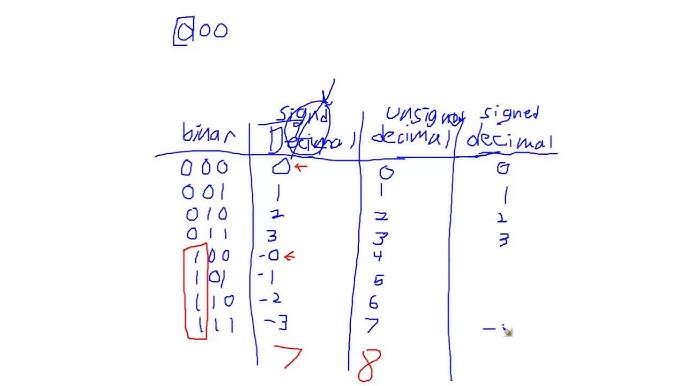 000
signd unsignd signed
binar Decimal decimal decimal
000 0 0 0
001 1 1 1
010 2 2 2
011 3 3 3
100 -0 4
101 -1 5
110 -2 6
111 -3 7 -
7 8